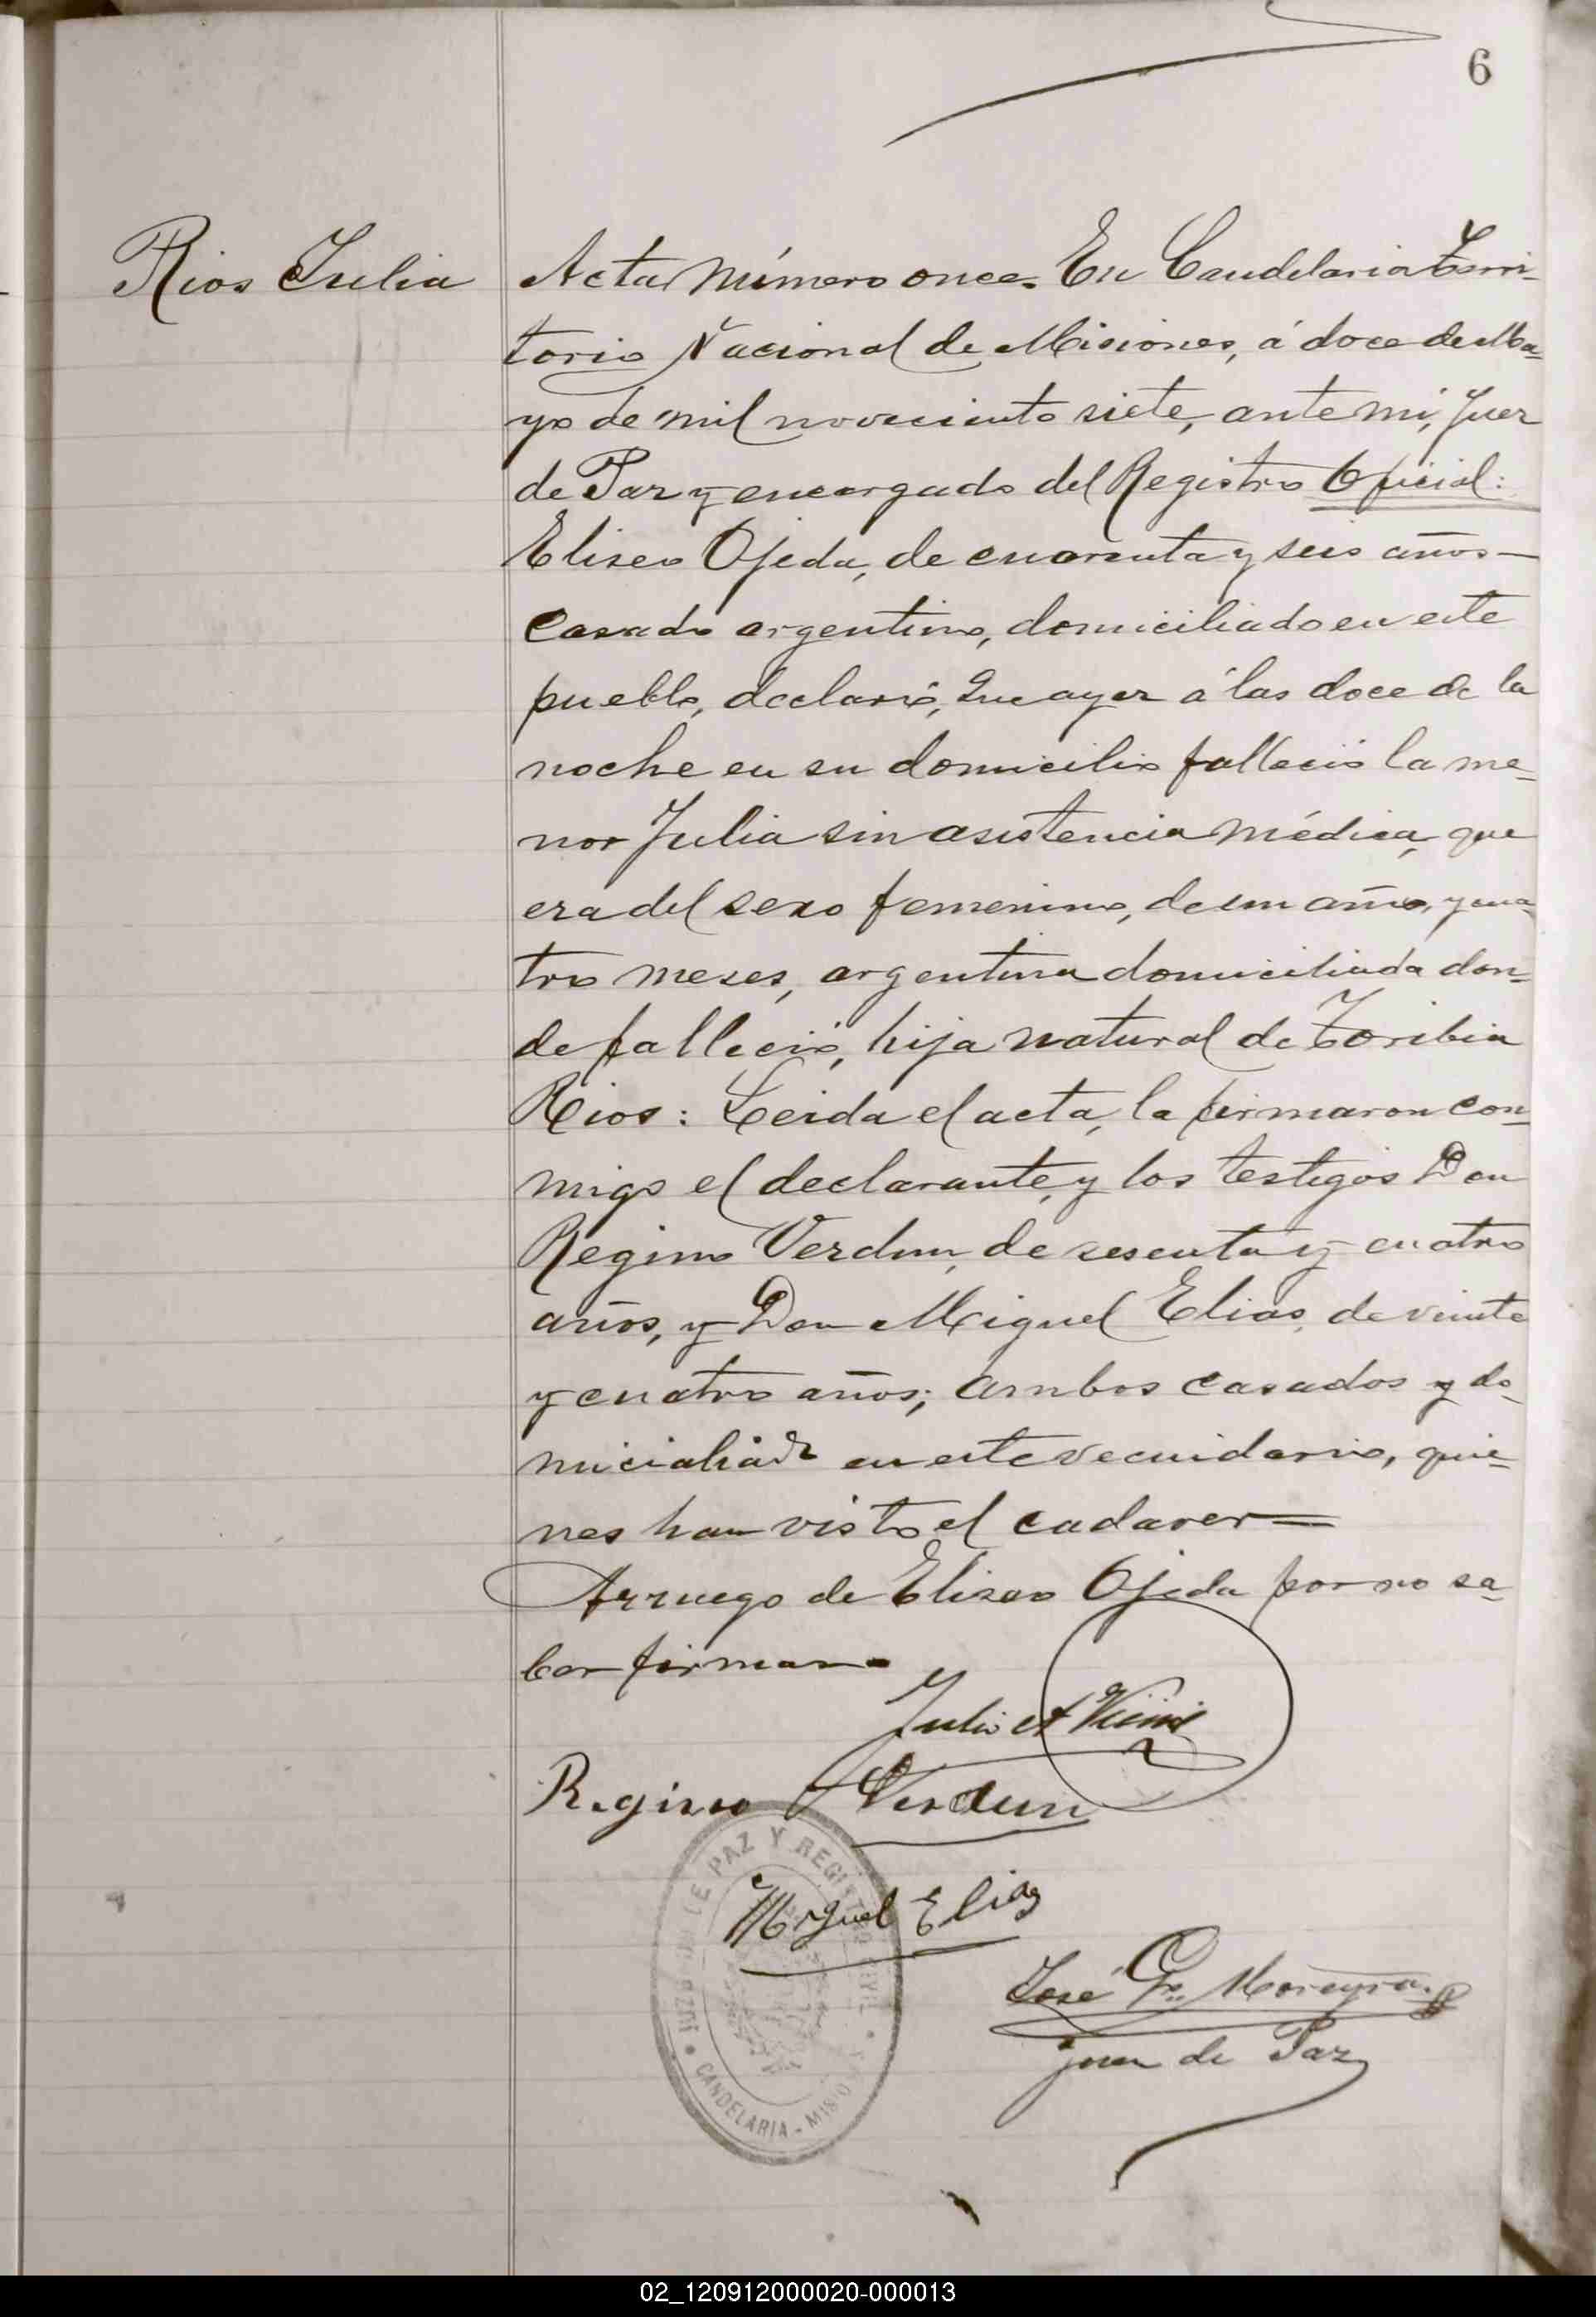 6
Rios Julia
Acta Número once. En Candelaria Terri-
torio Nacional de Misiones, á doce de Ma-
yo de mil noveciento siete, ante mi, Juez
de Paz y encargado del Registro Oficial:
Eliseo Ojeda, de cuarenta y seis años—
Casado argentino, domiciliado en este
pueblo, declaró, Que ayer á las doce de la
noche en su domicilio falleció la me-
nor Julia sin asistencia médica, que
era del sexo femenino, de un año, y cua-
tro meses, argentina domiciliada don-
de falleció, hija natural de Toribia
Rios: Leida el acta, la firmaron con-
migo el declarante, y los testigos Don
Regino Verdun, de sesenta y cuatro
años, y Don Miguel Elias, de veinte
y cuatro años; ambos casados y do-
micialiad en este vecindario, quie-
nes han visto el cadaver=
Arruego de Eliseo Ojeda por no sa-
ber firmar.
Julio A
Regino Verdun
Miguel Elias
José Go. Moreyra.
Juez de Paz
JUZGADO DE PAZ Y REGISTRO CIVIL
CANDELARIA - MISIONES
02_120912000020-000013